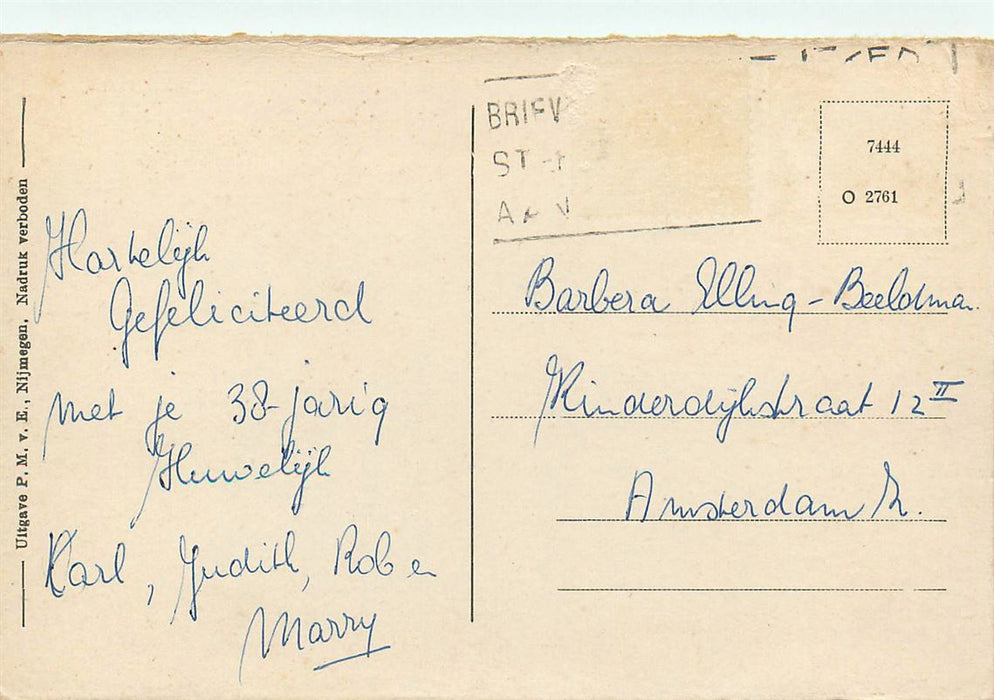 Uitgave P. M. v. E., Nijmegen, Nadruk verboden
Hartelijk
Gefeliciteerd
met je 38-jarig
Huwelijk
Karl, Judith, Rob en
Marry
BRIEV
ST
7444
O 2761
Barbera Elling-Beeldman
Kinderdijkstraat 12 II
Amsterdam Z.